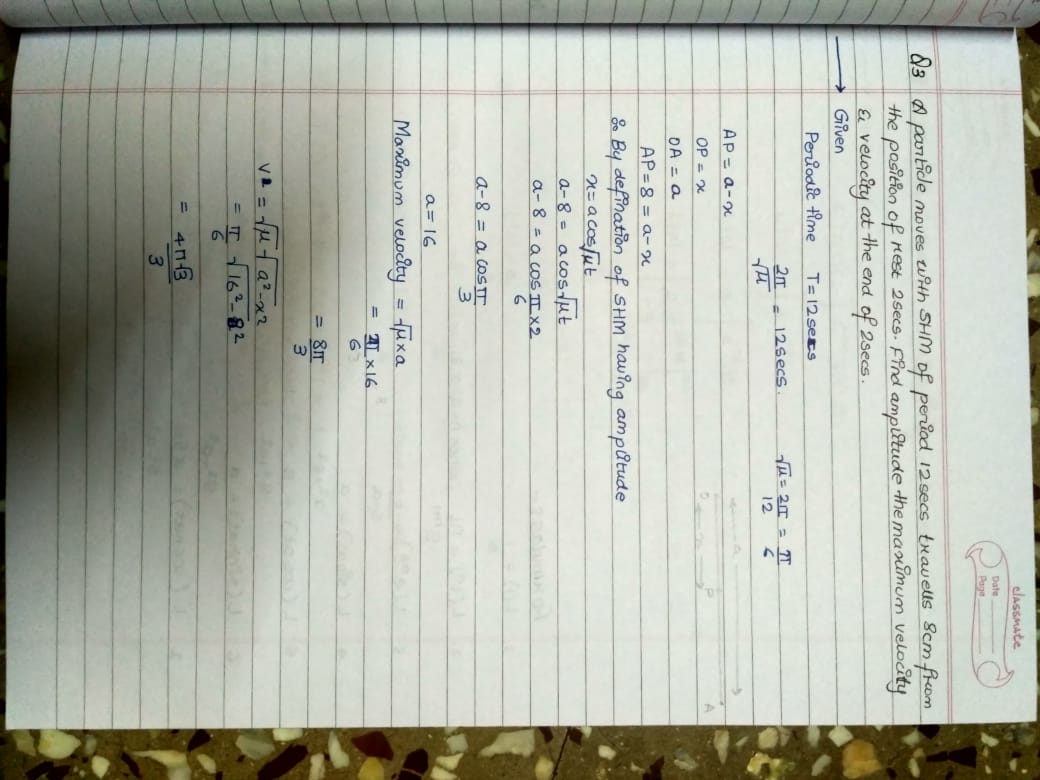 classmate
Date
Page
Q3 A particle moves with SHM of period 12secs travells 8cm from
the position of rest 2secs. Find amplitude the maximum velocity
& velocity at the end of 2secs.
→ Given
Periodic time T = 12secs
2π/√μ = 12secs. √μ = 2π/12 = π/6
AP = a - x
OP = x
OA = a
AP = 8 = a - x
∴ By defination of SHM having amplitude
x = a cos√μt
a - 8 = a cos√μt
a - 8 = a cos π/6 × 2
a - 8 = a cos π/3
a = 16
Maximum velocity = √μ × a
= π/6 × 16
= 8π/3
v = √μ √a² - x²
= π/6 √16² - 8²
= 4π√3/3